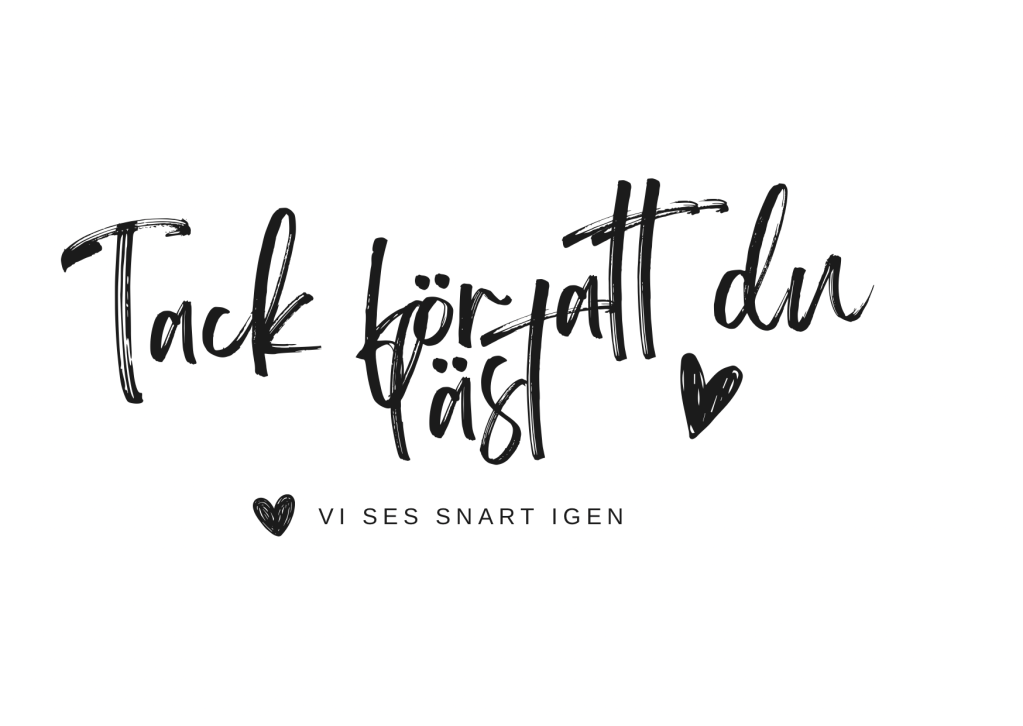 Tack för att du
läst
VI SES SNART IGEN